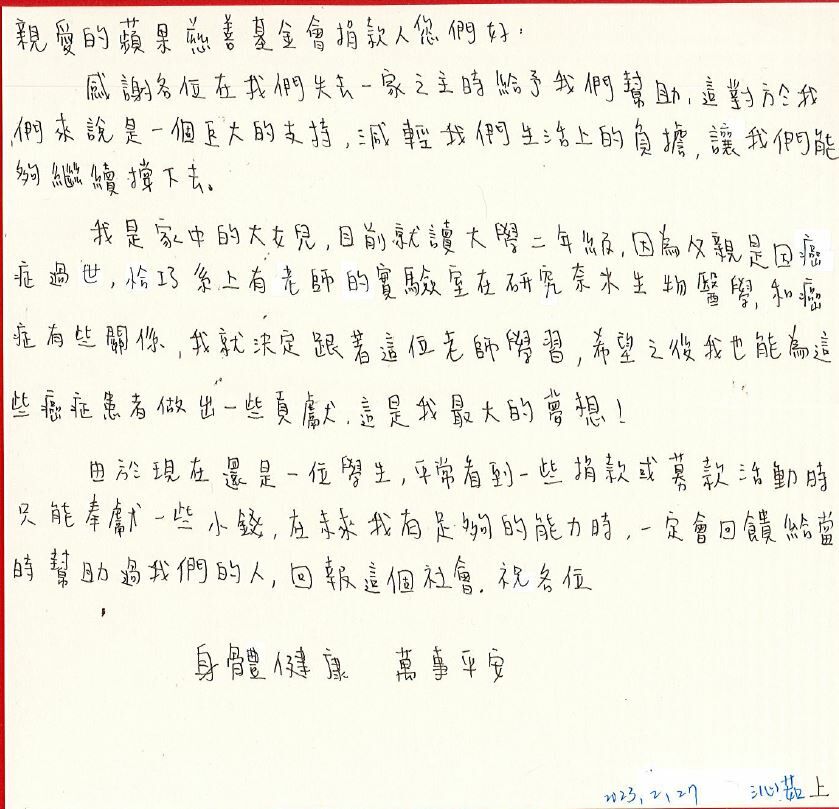 親愛的蘋果慈善基金會捐款人您們好：
感謝各位在我們失去一家之主時給予我們幫助，這對於我
們來說是一個巨大的支持，減輕我們生活上的負擔，讓我們能
夠繼續撐下去。
我是家中的大女兒，目前就讀大學二年級，因為父親是因癌
症過世，恰巧系上有老師的實驗室在研究奈米生物醫學，和癌
症有些關係，我就決定跟著這位老師學習，希望之後我也能為這
些癌症患者做出一些貢獻，這是我最大的夢想！
由於現在還是一位學生，平常看到一些捐款或募款活動時
只能奉獻一些小錢，在未來我有足夠的能力時，一定會回饋給當
時幫助過我們的人，回報這個社會。祝各位
身體健康 萬事平安
2023,2,27 沁茹上